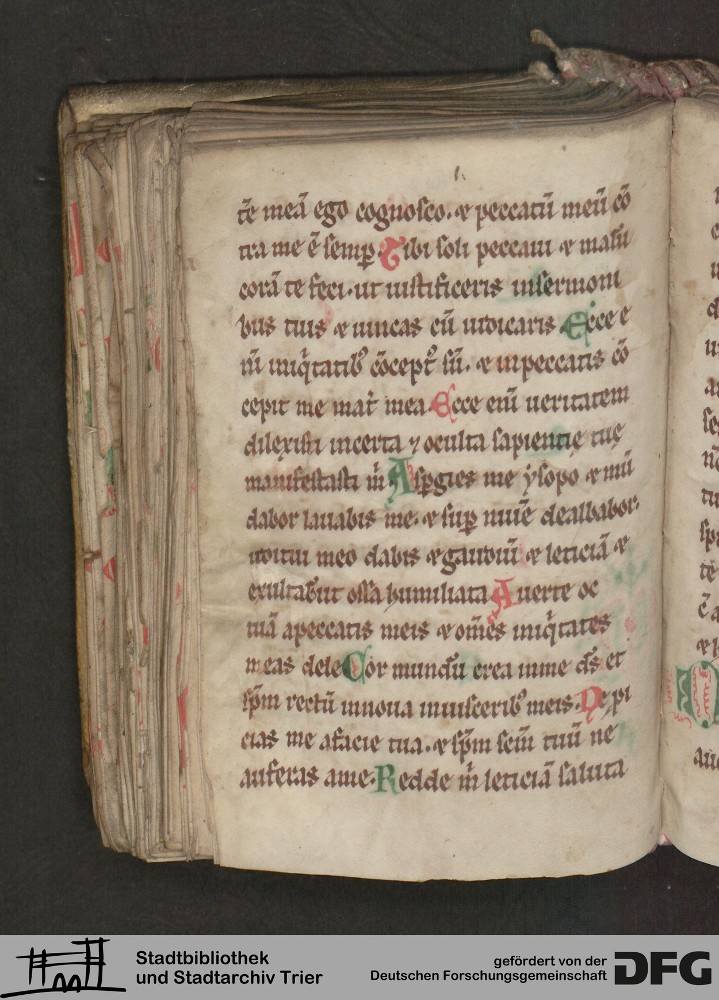 t̄e meā ego cognosco. ⁊ peccatū meū cō
tra me ē semp̲ Tibi soli peccaui ⁊ malū
corā te feci. ut iustificeris insermoni
bus tuis ⁊ uincas cū iudicaris Ecce e
ni̅ iniq̇tatib⁹ cōcept⁹ sū. ⁊ inpeccatis cō
cepit me mat̄ mea Ecce eni̅ ueritatem
dilexisti incerta ⁊ oculta sapientię tuę
manifestasti ṁ Asp̲gies me ẏsopo ⁊ mū
dabor lauabis me. ⁊ sup̲ niuē dealbabor.
uditui meo dabis ⁊ gaudiū ⁊ leticiā ⁊
exultab̄ut ossa humiliata Auerte oc
niā apeccatis meis ⁊ om̄es iniq̇tates
meas dele Cor mundū crea inme d̄s et
sp̄m rectū innoua inuiscerib⁹ meis. Ne pi
cias me afacie tua. ⁊ sp̄m sc̄m tuū ne
auferas ame. Redde ṁ leticiā saluta
Stadtbibliothek
und Stadtarchiv Trier
gefördert von der
Deutschen Forschungsgemeinschaft
DFG